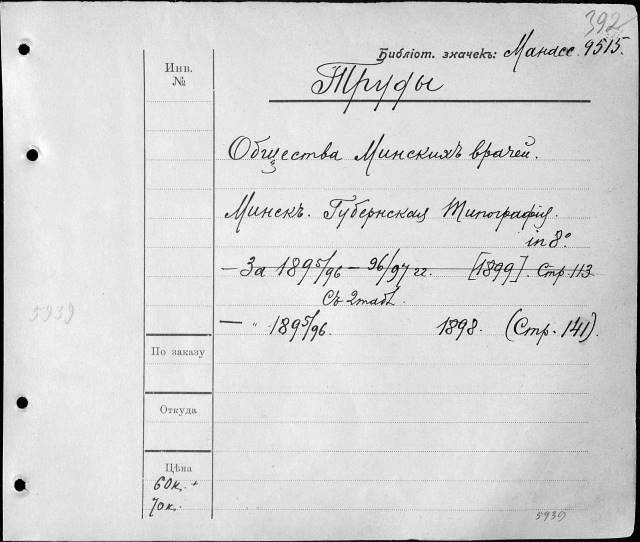 392
Библіот. значекъ: Манасс. 9515.
Инв.
№
Труды
Общества Минскихъ врачей.
Минскъ. Губернская Типографія.
in 8°.
— За 1895/96 — 96/97 гг. [1899]. Стр. 113
съ 2 табл.
— „ 1895/96. 1898. (Стр. 141).
5939
По заказу
Откуда
Цѣна
60к. +
70к.
5939